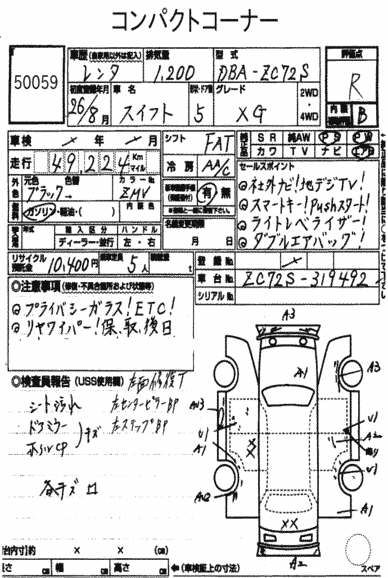 コンパクトコーナー
50059
車歴 (自家用以外は記入) 排気量 型式 評価点
レンタ 1,200 DBA-ZC72S R
初度登録年月 車名 ドア数 グレード 2WD 内装 B
26/8月 スイフト 5 XG 4WD
車検 年 月 シフト FAT 純正品 SR 純AW PS PW
カワ TV ナビ
走行 49,224 Km マイル 冷房 AA/C セールスポイント
外色 元色 色替 カラーNo
ブラック→ ZMV 有 無 @社外ナビ!地デジTV!
燃料 ガソリン・軽油・( ) 内装色 @スマートキー!Pushスタート!
輸入区分 ハンドル 名義変更期限 @ライトレベライザー!
ディーラー・並行 左・右 月 日 @ダブルエアバッグ!
リサイクル預託金 10,400円 乗車定員 5人 積載量 t 登録No.
車台No. ZC72S-319492
シリアルNo.
◎注意事項 (修復・不具合箇所および状態等)
@プライバシーガラス!ETC!
@リヤワイパー!保、取、後日
A3
◎検査員報告 (USS使用欄) 左面修復了
シート汚れ 左センターピラーBP
ドアミラー 左ステップBP
キズ
A1
A3
U1
A1
XX
U1
A2
U1
A1
XX
A2
台内寸(約) × × (cm)
長さ cm 幅 cm 高さ cm ←(車検証上の寸法) スペア